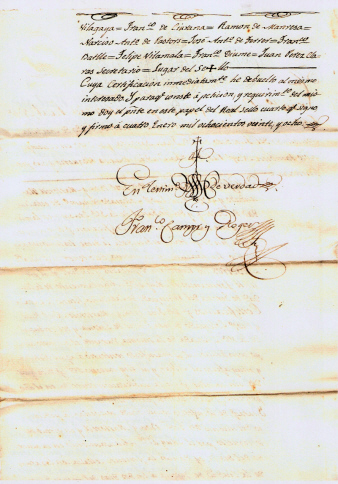 Vilagaya = Fran.co de Ciurana = Ramon de Manresa =
Narcis Ant.o de Fosters = Josè Ant.o de Ferrer = Fran.co
Datlle = Felipe Vilamala = Fran.co Diume = Juan Perez Cla-
ros Secretario = Lugar del Se+llo
Cuya Certificacion immediatam.te he debuelto al mismo
interesado Y paraq.e conste á peticion, y requirim.to del mis-
mo doy el p.nte en este papel del Real sello quarto
y firmo á cuatro Enero mil ochocientos veinte, y ocho
En testim.o de verdad
Fran.co Camps y Roger